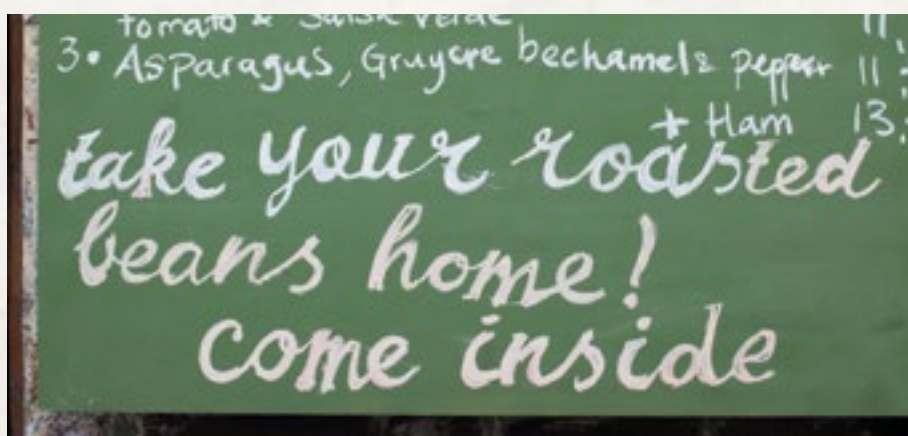 tomato & Salsa verde, 11
3. Asparagus, Gruyere bechamel & pepper 11
+ Ham 13.
take your roasted
beans home!
come inside